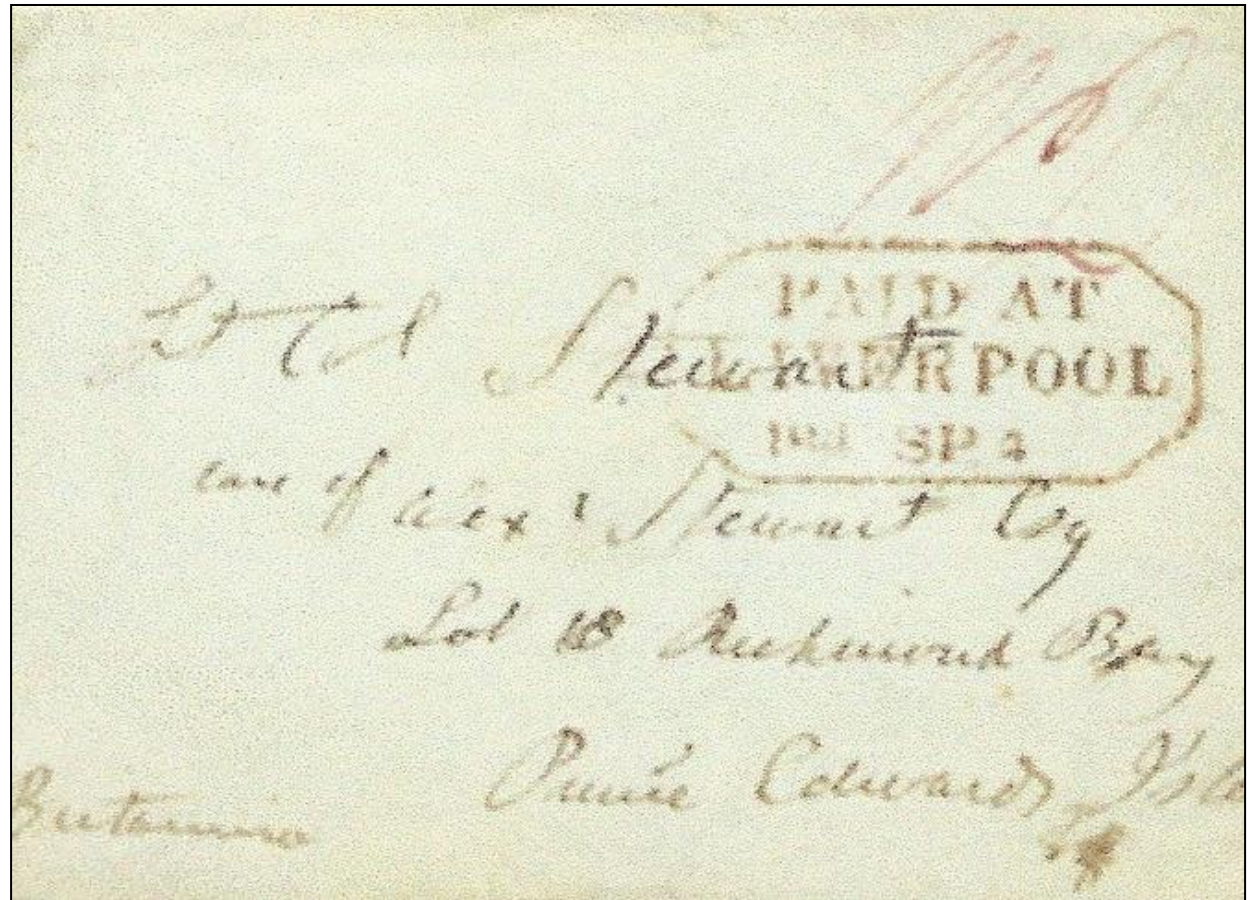 PAID AT
LIVERPOOL
SP
Lt Col Stewart
care of Alexr Stewart Esq
Lot 18 Richmond Bay
Prince Edwards Isla
Britannia